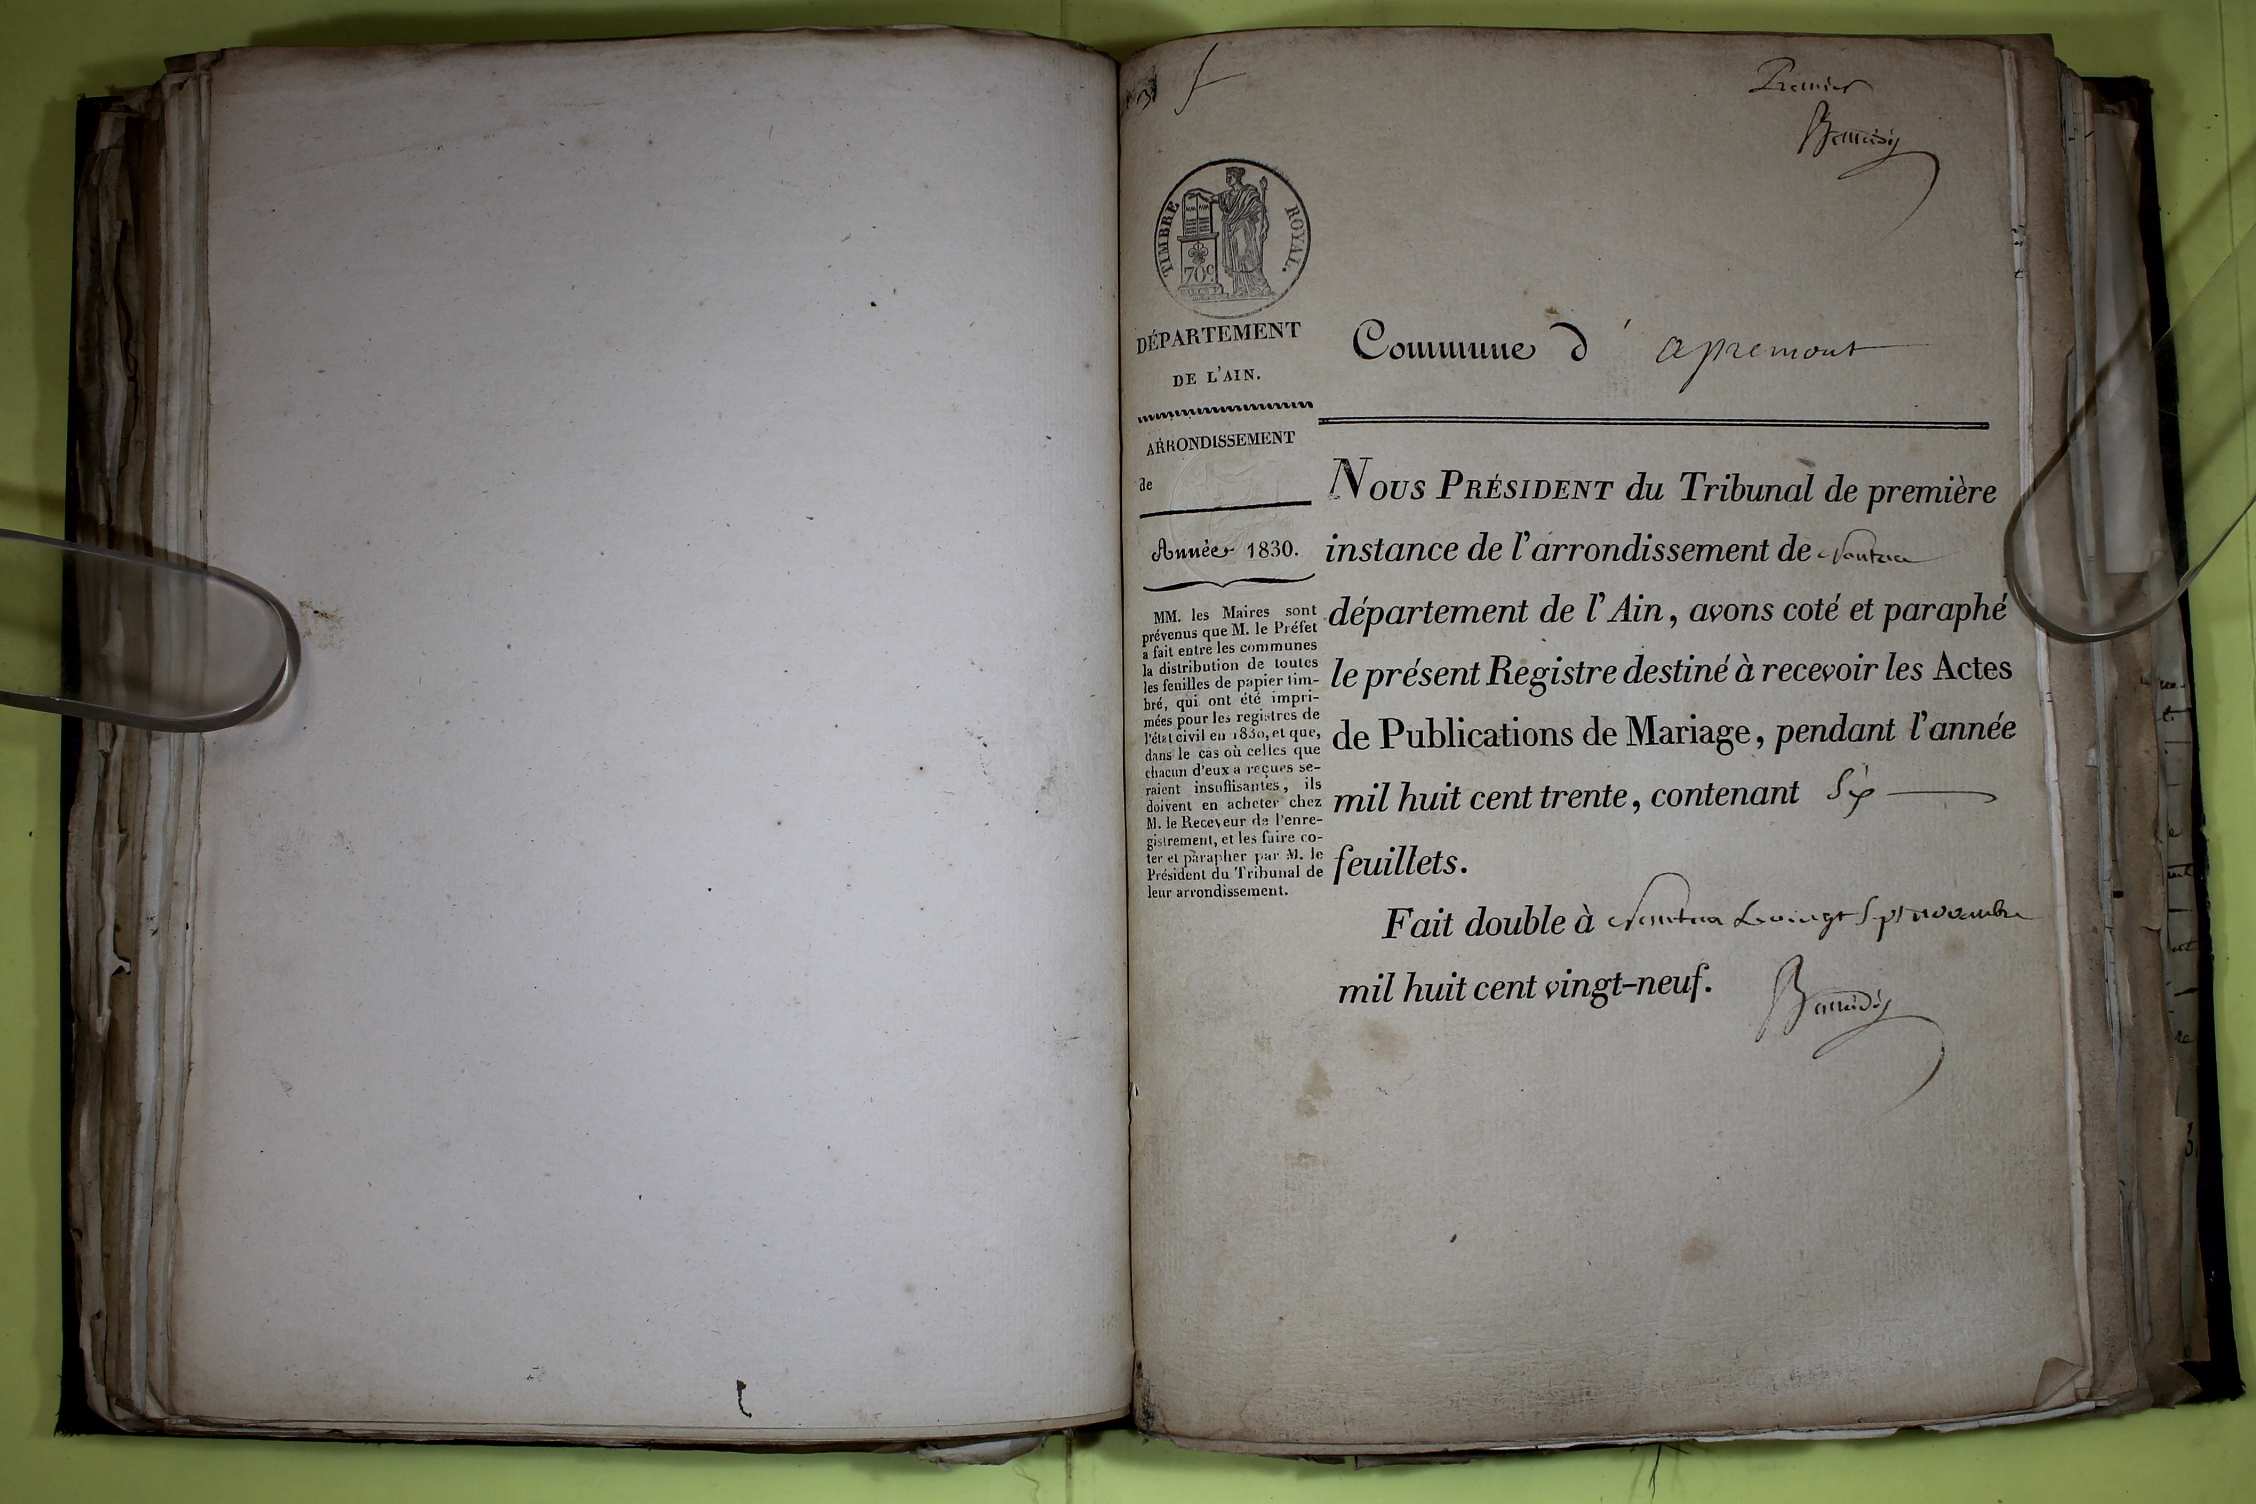 Premier
TIMBRE ROYAL.
70c
DÉPARTEMENT
DE L'AIN.
Commune d' apremont
ARRONDISSEMENT
de
Année 1830.
MM. les Maires sont
prévenus que M. le Préfet
a fait entre les communes
la distribution de toutes
les feuilles de papier tim-
bré, qui ont été impri-
mées pour les registres de
l'état civil en 1830, et que,
dans le cas où celles que
chacun d'eux a reçues se-
raient insuffisantes, ils
doivent en acheter chez
M. le Receveur de l'enre-
gistrement, et les faire co-
ter et parapher par M. le
Président du Tribunal de
leur arrondissement.
NOUS PRÉSIDENT du Tribunal de première
instance de l'arrondissement de Nantua
département de l'Ain, avons coté et paraphé
le présent Registre destiné à recevoir les Actes
de Publications de Mariage, pendant l'année
mil huit cent trente, contenant Six
feuillets.
Fait double à Nantua le vingt sept novembre
mil huit cent vingt-neuf.